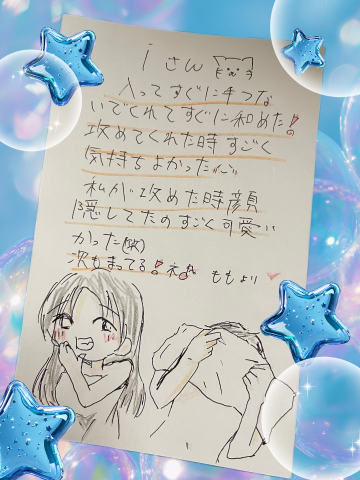 iさん
入ってすぐに手つな
いでくれてすぐに和めた!
攻めてくれた時すごく
気持ちよかった
私が攻めた時顔
隠してたのすごく可愛い
かった(笑)
次もまってる!ネ!
ももより